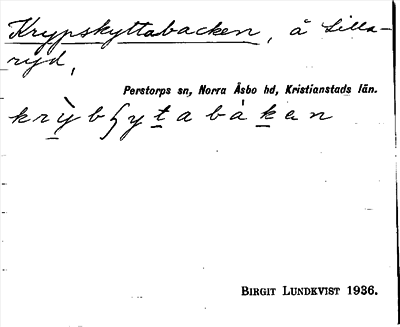 Krypskyttabacken, å Lilla-
ryd,
Perstorps sn, Norra Åsbo hd, Kristianstads län.
krỳbʃytabàkan
BIRGIT LUNDKVIST 1936.